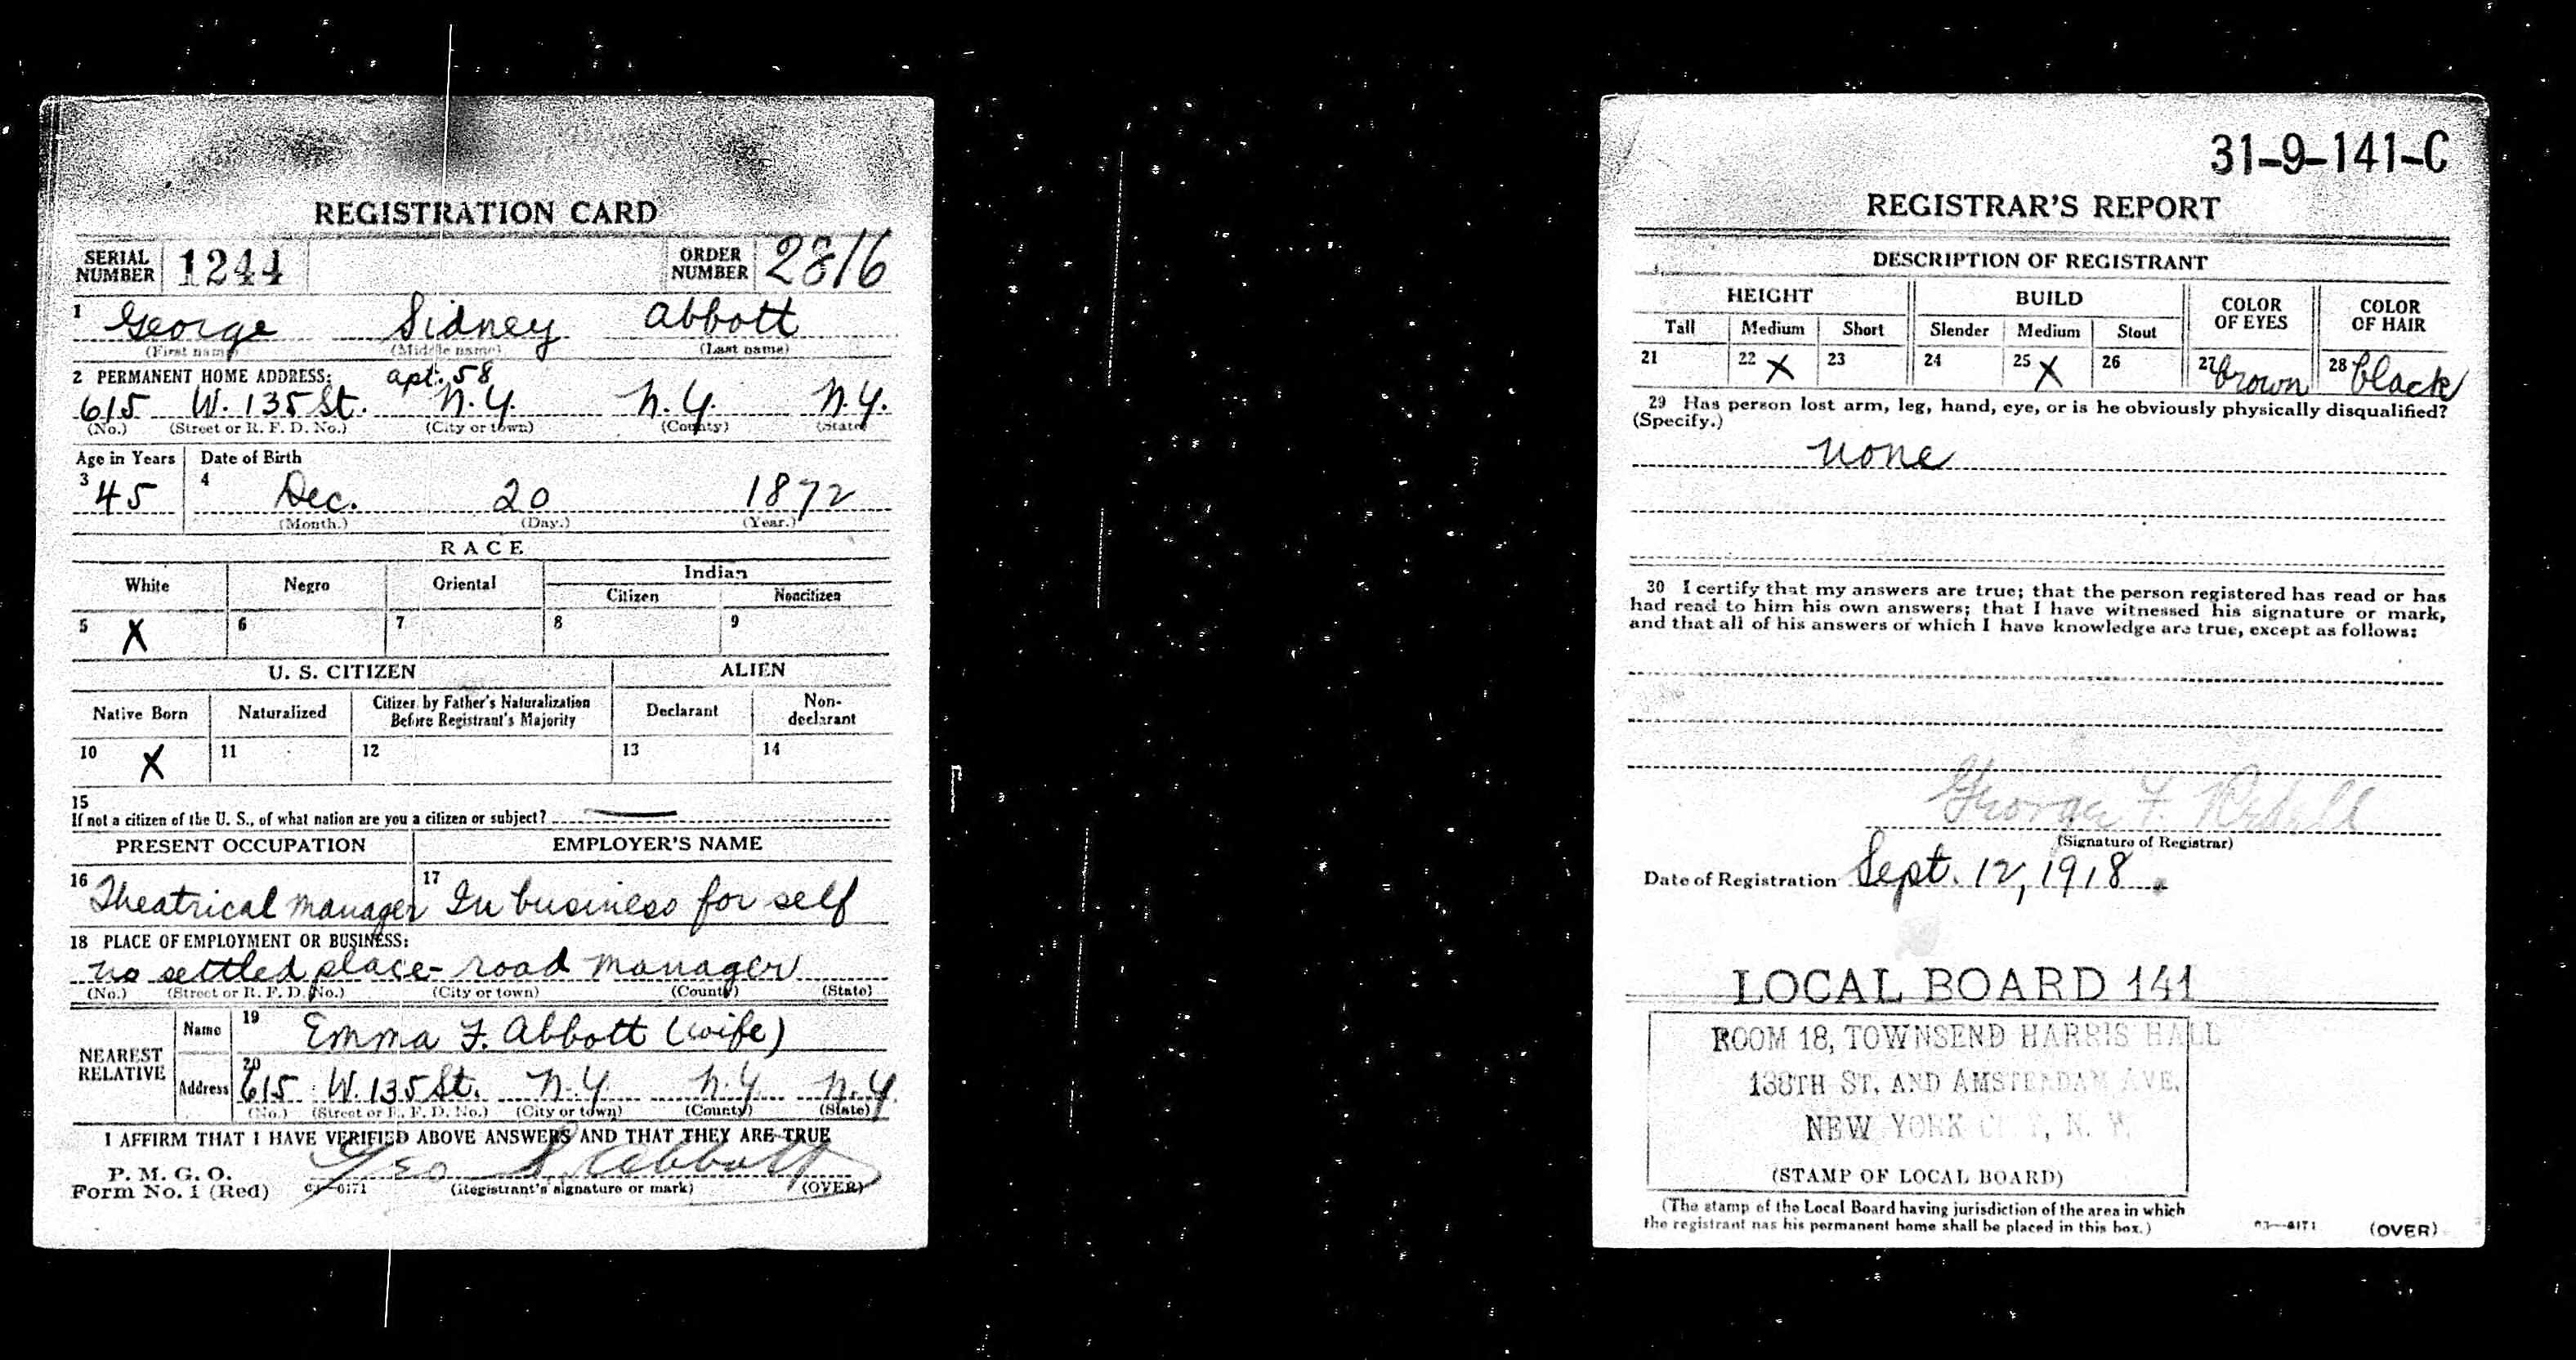 REGISTRATION CARD
SERIAL NUMBER 1244 ORDER NUMBER 2816
1 George Sidney Abbott
(First name) (Middle name) (Last name)
2 PERMANENT HOME ADDRESS: apt. 58
615 W. 135 St. N.Y. N.Y. N.Y.
(No.) (Street or R. F. D. No.) (City or town) (County) (State)
Age in Years Date of Birth
3 45 4 Dec. 20 1872
(Month.) (Day.) (Year.)
RACE
White Negro Oriental Indian
Citizen Noncitizen
5 X 6 7 8 9
U. S. CITIZEN ALIEN
Native Born Naturalized Citizen by Father's Naturalization Before Registrant's Majority Declarant Non-declarant
10 X 11 12 13 14
15
If not a citizen of the U. S., of what nation are you a citizen or subject? —
PRESENT OCCUPATION EMPLOYER'S NAME
16 Theatrical manager 17 In business for self
18 PLACE OF EMPLOYMENT OR BUSINESS:
no settled place - road manager
(No.) (Street or R. F. D. No.) (City or town) (County) (State)
NEAREST RELATIVE
Name 19 Emma F. Abbott (wife)
Address 20 615 W. 135 St. N.Y. N.Y. N.Y.
(No.) (Street or R. F. D. No.) (City or town) (County) (State)
I AFFIRM THAT I HAVE VERIFIED ABOVE ANSWERS AND THAT THEY ARE TRUE
P. M. G. O.
Form No. 1 (Red) 03—6171 Geo S. Abbott
(Registrant's signature or mark) (OVER)
31-9-141-C
REGISTRAR'S REPORT
DESCRIPTION OF REGISTRANT
HEIGHT BUILD COLOR OF EYES COLOR OF HAIR
Tall Medium Short Slender Medium Stout
21 22 X 23 24 25 X 26 27 brown 28 black
29 Has person lost arm, leg, hand, eye, or is he obviously physically disqualified?
(Specify.)
none
30 I certify that my answers are true; that the person registered has read or has
had read to him his own answers; that I have witnessed his signature or mark,
and that all of his answers of which I have knowledge are true, except as follows:
George F.
(Signature of Registrar)
Date of Registration Sept. 12, 1918.
LOCAL BOARD 141
ROOM 18, TOWNSEND HARRIS HALL
138TH ST. AND AMSTERDAM AVE.
NEW YORK CITY, N. Y.
(STAMP OF LOCAL BOARD)
(The stamp of the Local Board having jurisdiction of the area in which
the registrant has his permanent home shall be placed in this box.)
03—6171 (OVER)